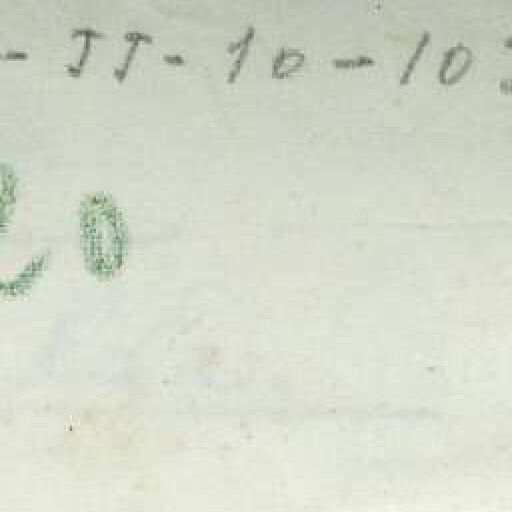 - JJ - 10 - 10
20